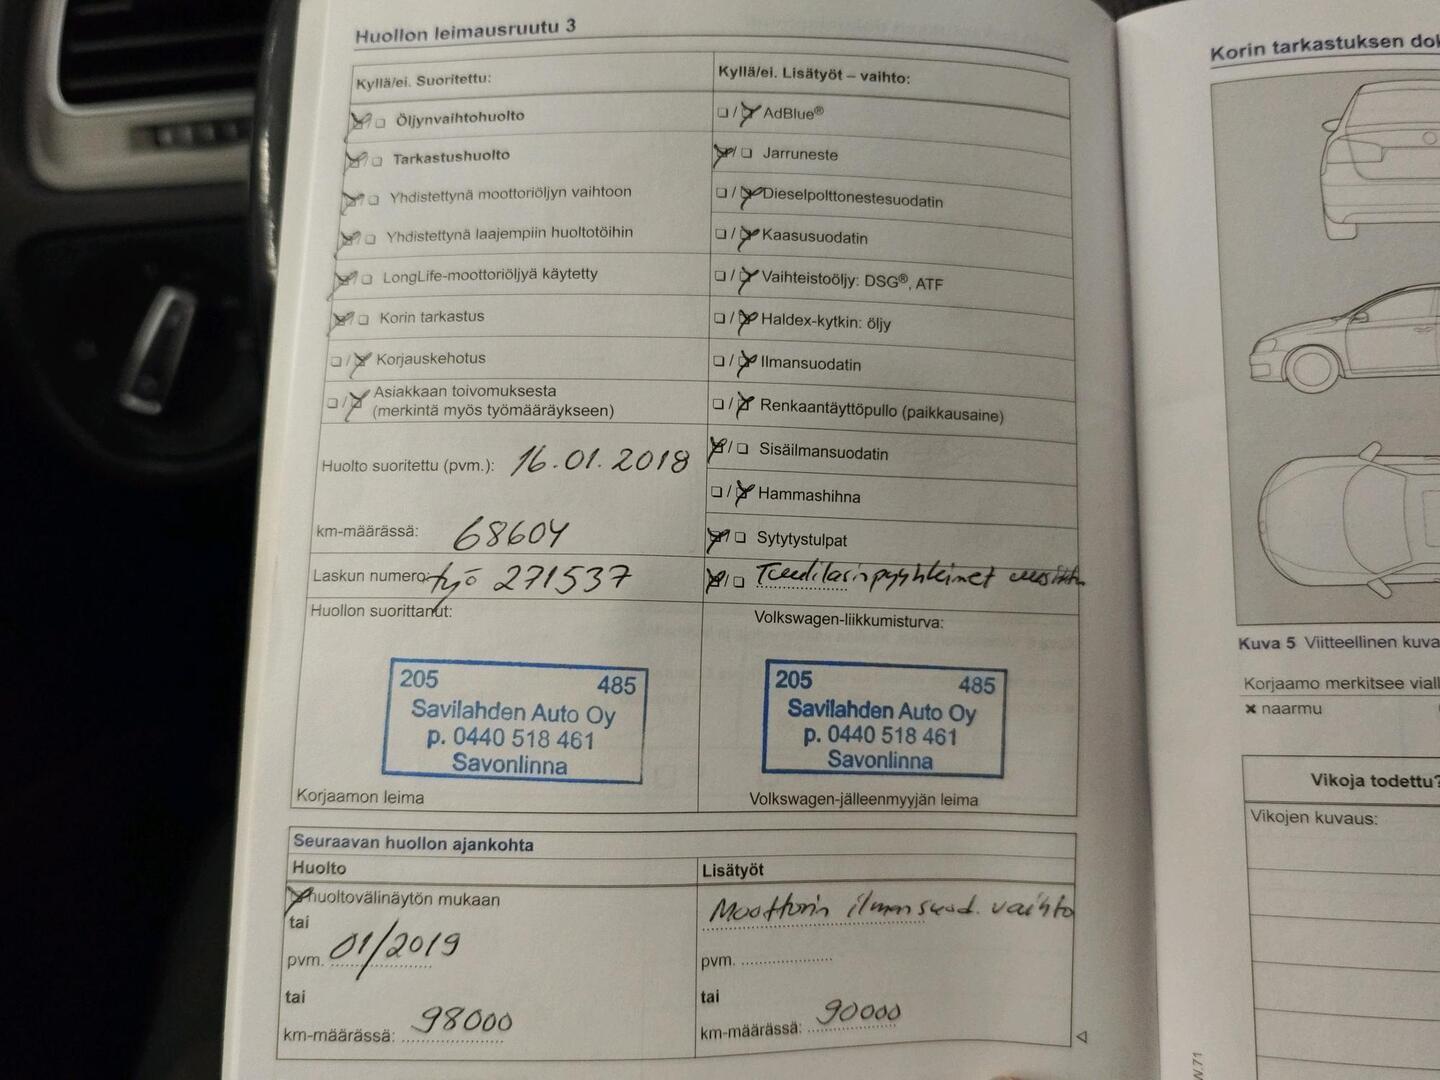 Huollon leimausruutu 3
Kyllä/ei. Suoritettu:
Öljynvaihtohuolto
Tarkastushuolto
Yhdistettynä moottoriöljyn vaihtoon
Yhdistettynä laajempiin huoltotöihin
LongLife-moottoriöljyä käytetty
Korin tarkastus
Korjauskehotus
Asiakkaan toivomuksesta
(merkintä myös työmääräykseen)
Huolto suoritettu (pvm.): 16.01.2018
km-määrässä: 68604
Laskun numero: työ 271537
Huollon suorittanut:
205 485
Savilahden Auto Oy
p. 0440 518 461
Savonlinna
Korjaamon leima
Kyllä/ei. Lisätyöt – vaihto:
AdBlue®
Jarruneste
Dieselpolttonestesuodatin
Kaasusuodatin
Vaihteistoöljy: DSG®, ATF
Haldex-kytkin: öljy
Ilmansuodatin
Renkaantäyttöpullo (paikkausaine)
Sisäilmansuodatin
Hammashihna
Sytytystulpat
Volkswagen-liikkumisturva:
205 485
Savilahden Auto Oy
p. 0440 518 461
Savonlinna
Volkswagen-jälleenmyyjän leima
Seuraavan huollon ajankohta
Huolto
huoltovälinäytön mukaan
tai
pvm. 01/2019
tai
km-määrässä: 98000
Lisätyöt
Moottorin ilmansuod. vaihto
pvm.
tai
km-määrässä: 90000
Korin tarkastuksen dok
Kuva 5 Viitteellinen kuva
Korjaamo merkitsee viall
naarmu
Vikoja todettu?
Vikojen kuvaus: